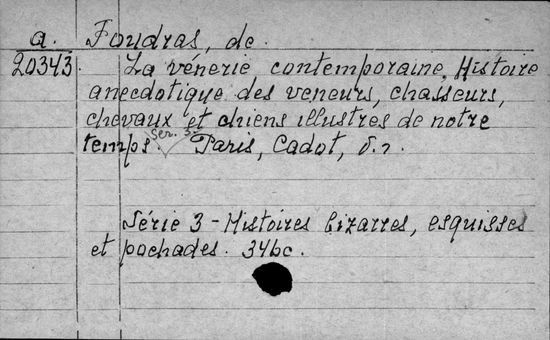 a. Foudras, de.
20343. La vénerie contemporaine. Histoire
anecdotique des veneurs, chasseurs,
chevaux et chiens illustres de notre
temps. Ser. 3. Paris, Cadot, s.a.
Série 3 - Histoires bizarres, esquisses
et pochades. 346c.